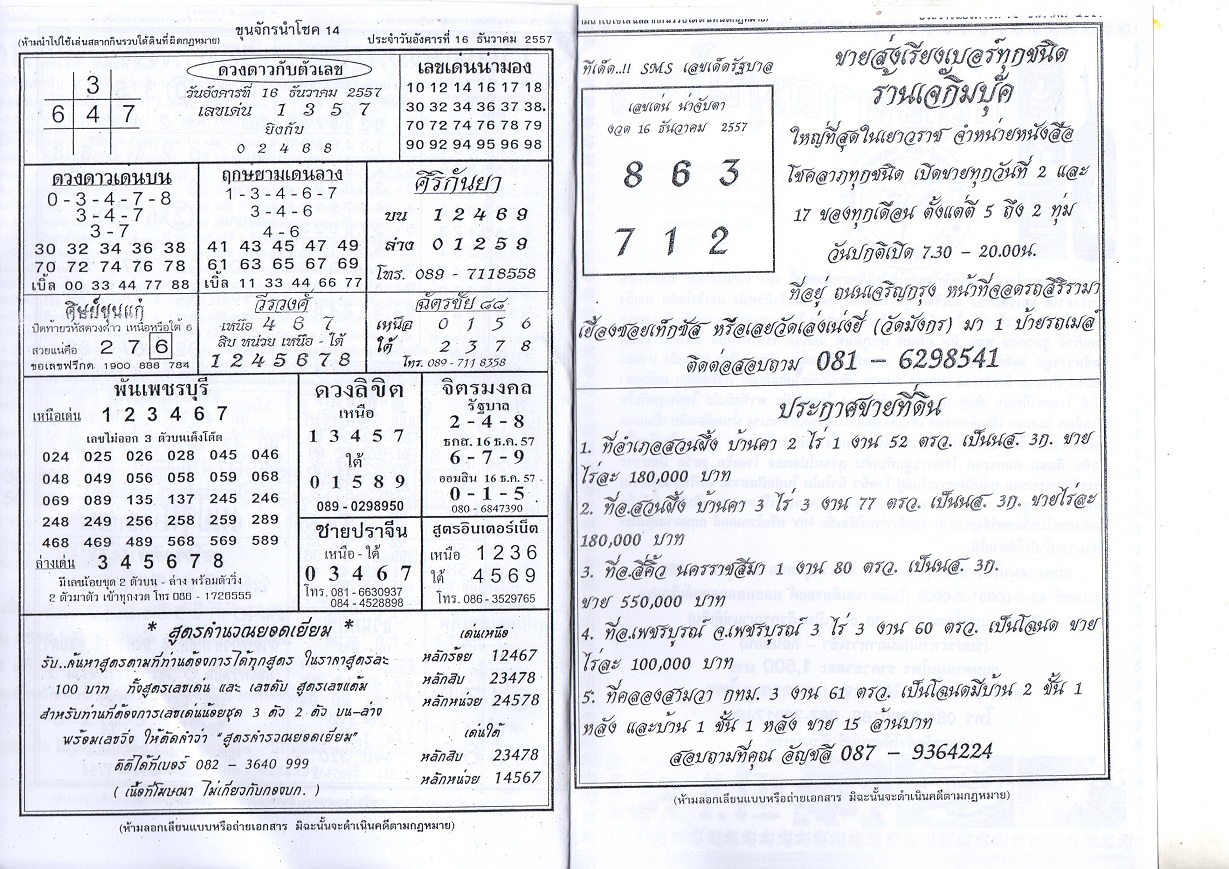 (ห้ามนำไปใช้เล่นสลากกินรวบใต้ดินที่ผิดกฎหมาย) ขุนจักรนำโชค 14 ประจำวันอังคารที่ 16 ธันวาคม 2557
3
6 4 7
ดวงดาวกับตัวเลข
วันอังคารที่ 16 ธันวาคม 2557
เลขเด่น 1 3 5 7
ยิงกับ
0 2 4 6 8
เลขเด่นน่ามอง
10 12 14 16 17 18
30 32 34 36 37 38.
70 72 74 76 78 79
90 92 94 95 96 98
ดวงดาวเดนบน
0-3-4-7-8
3-4-7
3-7
30 32 34 36 38
70 72 74 76 78
เบิ้ล 00 33 44 77 88
ฤกษ์ยามเดนล่าง
1-3-4-6-7
3-4-6
4-6
41 43 45 47 49
61 63 65 67 69
เบิ้ล 11 33 44 66 77
ศิริกันยา
บน 1 2 4 6 9
ล่าง 0 1 2 5 9
โทร. 089 - 7118558
ศิษย์ขุนแก่
ปิดท้ายรหัสดวงดาว เหนือหรือใต้ 6
สวยแน่คือ 2 7 6
ขอเลขฟรีกด 1900 888 784
วีรวงศ์
เหนือ 4 6 7
สิบ หน่วย เหนือ - ใต้
1 2 4 5 6 7 8
ฉัตรชัย ๘๘
เหนือ 0 1 5 6
ใต้ 2 3 7 8
โทร. 089 - 711 8358
พันเพชรบุรี
เหนือเด่น 1 2 3 4 6 7
เลขไม่ออก 3 ตัวบนเต็งโต๊ด
024 025 026 028 045 046
048 049 056 058 059 068
069 089 135 137 245 246
248 249 256 258 259 289
468 469 489 568 569 589
ล่างเด่น 3 4 5 6 7 8
มีเลขน้อยชุด 2 ตัวบน - ล่าง พร้อมตัววิ่ง
2 ตัวมาตัว เข้าทุกงวด โทร 086 - 1726555
ดวงลิขิต
เหนือ
1 3 4 5 7
ใต้
0 1 5 8 9
089 - 0298950
จิตรมงคล
รัฐบาล
2-4-8
ธกส. 16 ธ.ค. 57
6-7-9
ออมสิน 16 ธ.ค. 57
0-1-5
080 - 6847390
ชายปราจีน
เหนือ - ใต้
0 3 4 6 7
โทร. 081 - 6630937
084 - 4528898
สูตรอินเตอร์เน็ต
เหนือ 1 2 3 6
ใต้ 4 5 6 9
โทร. 086 - 3529765
* สูตรคำนวณยอดเยี่ยม *
รับ..ค้นหาสูตรตามที่ท่านต้องการได้ทุกสูตร ในราคาสูตรละ
100 บาท ทั้งสูตรเลขเด่น และ เลขดับ สูตรเลขแต้ม
สำหรับท่านที่ต้องการเลขเด่นน้อยชุด 3 ตัว 2 ตัว บน-ล่าง
พร้อมเลขวิ่ง ให้ตัดคำว่า "สูตรคำรวณยอดเยี่ยม"
ติดต่อได้ที่เบอร์ 082 - 3640 999
( เนื้อที่โฆษณา ไม่เกี่ยวกับกองบก. )
เด่นเหนือ
หลักร้อย 12467
หลักสิบ 23478
หลักหน่วย 24578
เด่นใต้
หลักสิบ 23478
หลักหน่วย 14567
(ห้ามลอกเลียนแบบหรือถ่ายเอกสาร มิฉะนั้นจะดำเนินคดีตามกฎหมาย)
ทีเด็ด..!! SMS เลขเด็ดรัฐบาล
เลขเด่น น่าจับตา
งวด 16 ธันวาคม 2557
8 6 3
7 1 2
ขายส่งเรียงเบอร์ทุกชนิด
ร้านเจ๊กิมบุ๊ค
ใหญ่ที่สุดในเยาวราช จำหน่ายหนังสือ
โชคลาภทุกชนิด เปิดขายทุกวันที่ 2 และ
17 ของทุกเดือน ตั้งแต่ตี 5 ถึง 2 ทุ่ม
วันปกติเปิด 7.30 - 20.00น.
ที่อยู่ ถนนเจริญกรุง หน้าที่จอดรถสิริรามา
เยื้องซอยเท็กซัส หรือเลยวัดเล่งเน่งยี่ (วัดมังกร) มา 1 ป้ายรถเมล์
ติดต่อสอบถาม 081 - 6298541
ประกาศขายที่ดิน
1. ที่อำเภอสวนผึ้ง บ้านคา 2 ไร่ 1 งาน 52 ตรว. เป็นนส. 3ก. ขาย
ไร่ละ 180,000 บาท
2. ที่อ.สวนผึ้ง บ้านคา 3 ไร่ 3 งาน 77 ตรว. เป็นนส. 3ก. ขายไร่ละ
180,000 บาท
3. ที่อ.สี่คิ้ว นครราชสีมา 1 งาน 80 ตรว. เป็นนส. 3ก.
ขาย 550,000 บาท
4. ที่อ.เพชรบูรณ์ จ.เพชรบูรณ์ 3 ไร่ 3 งาน 60 ตรว. เป็นโฉนด ขาย
ไร่ละ 100,000 บาท
5. ที่คลองสามวา กทม. 3 งาน 61 ตรว. เป็นโฉนดมีบ้าน 2 ชั้น 1
หลัง และบ้าน 1 ชั้น 1 หลัง ขาย 15 ล้านบาท
สอบถามที่คุณ อัญชลี 087 - 9364224
(ห้ามลอกเลียนแบบหรือถ่ายเอกสาร มิฉะนั้นจะดำเนินคดีตามกฎหมาย)